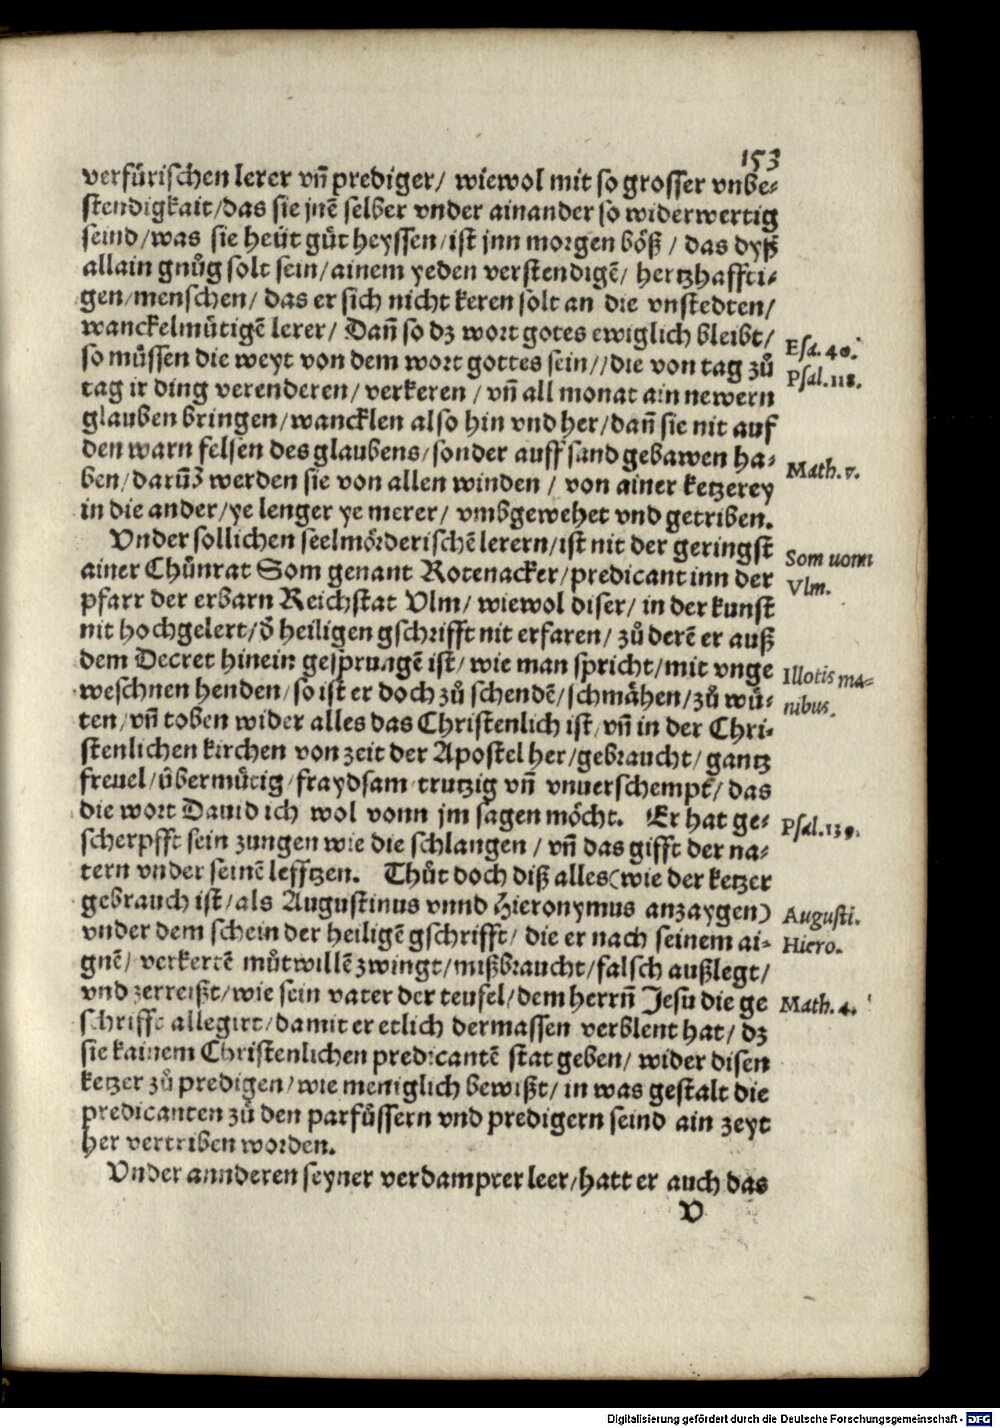 153
verfürischen lerer vn̄ prediger/ wiewol mit so grosser vnbe⸗
stendigkait/das sie jnē selber vnder ainander so widerwertig
seind/was sie heüt gůt heyssen/ist jnn morgen böß/ das dyß
allain gnůg solt sein/ainem yeden verstendigē/ hertzhaffti⸗
gen/menschen/ das er sich nicht keren solt an die vnstedten/
wanckelmütigē lerer/ Dan̄ so dz wort gotes ewiglich bleibt/
Esa. 40.
so müssen die weyt von dem wort gottes sein//die von tag zů
Psal. 118.
tag ir ding verenderen/verkeren/vn̄ all monat ain newern
glauben bringen/wancklen also hin vnd her/dan̄ sie nit auf
den warn felsen des glaubens/sonder auff sand gebawen ha⸗
Math. 7.
ben/darūb werden sie von allen winden/ von ainer ketzerey
in die ander/ye lenger ye merer/ vmbgewehet vnd getriben.
Vnder sollichen seelmörderischē lerern/ist nit der geringst
Som uonn
ainer Chůnrat Som genant Rotenacker/predicant inn der
Vlm.
pfarr der erbarn Reichstat Vlm/ wiewol diser/ in der kunst
nit hochgelert/d̄ heiligen gschrifft nit erfaren/ zů derē er auß
dem Decret hinein gesprungē ist/ wie man spricht/mit vnge
Illotis ma⸗
weschnen henden/so ist er doch zů schendē/schmähen/zů wü⸗
nibus.
ten/vn̄ toben wider alles das Christenlich ist/vn̄ in der Chri⸗
stenlichen kirchen von zeit der Apostel her/gebraucht/gantz
freuel/übermütig/fraydsam trutzig vn̄ vnuerschempt/das
die wort Dauid ich wol vonn jm sagen möcht. Er hat ge⸗
Psal. 139.
scherpfft sein zungen wie die schlangen/vn̄ das gifft der na⸗
tern vnder seinē lefftzen. Thůt doch diß alles(wie der ketzer
gebrauch ist/als Augustinus vnnd Hieronymus anzaygen)
Augusti.
vnder dem schein der heiligē gschrifft/ die er nach seinem ai⸗
Hiero.
gnē/ verkertē můtwillē zwingt/mißbraucht/falsch außlegt/
vnd zerreißt/wie sein vater der teufel/dem herrn̄ Jesu die ge
Math. 4.
schrifft allegirt/damit er etlich dermassen verblent hat/ dz
sie kainem Christenlichen predicantē stat geben/ wider disen
ketzer zů predigen/wie meniglich bewißt/in was gestalt die
predicanten zů den parfůssern vnd predigern seind ain zeyt
her vertriben worden.
Vnder annderen seyner verdampter leer/hatt er auch das
V
Digitalisierung gefördert durch die Deutsche Forschungsgemeinschaft - DFG